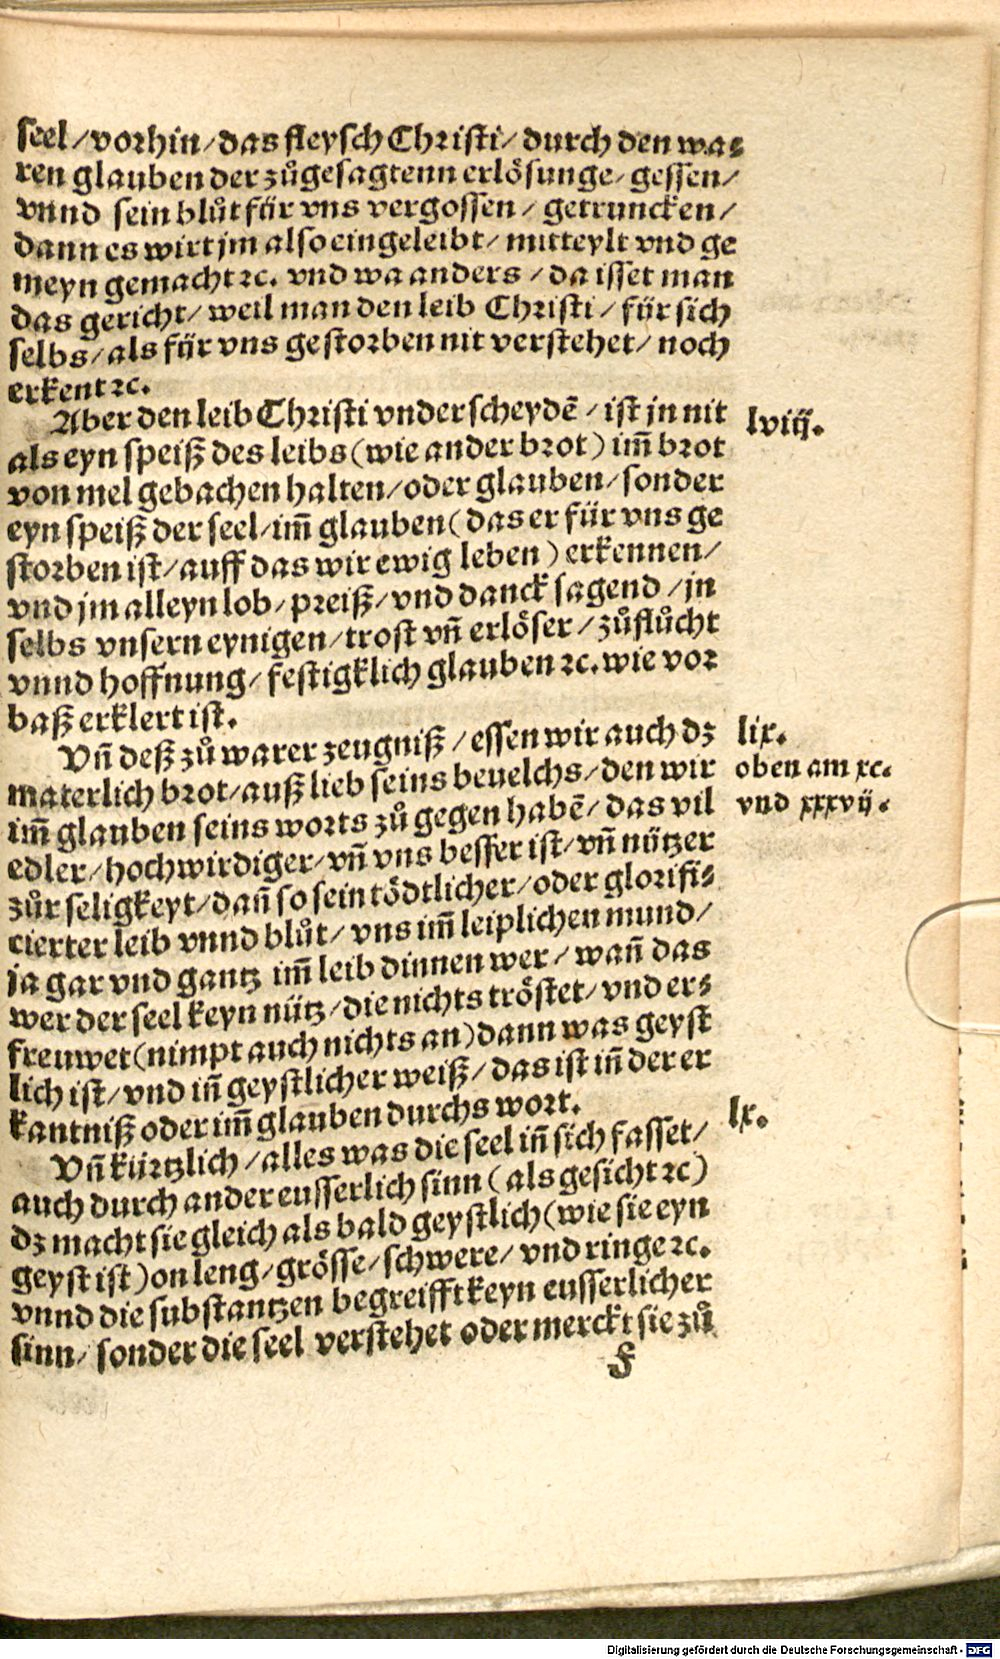 seel/vorhin/das fleysch Christi/durch den wa⸗
ren glauben der zůgesagtenn erlösunge/gessen/
vnnd sein blůt für vns vergossen/getruncken/
dann es wirt jm also eingeleibt/mitteylt vnd ge
meyn gemacht ꝛc. vnd wa anders/da isset man
das gericht/weil man den leib Christi/für sich
selbs/als für vns gestorben nit verstehet/noch
erkent ꝛc.
Aber den leib Christi vnderscheydē/ist jn nit
lviij.
als eyn speiß des leibs(wie ander brot)im̄ brot
von mel gebachen halten/oder glauben/sonder
eyn speiß der seel/im̄ glauben(das er für vns ge
storben ist/auff das wir ewig leben)erkennen/
vnd jm alleyn lob/preiß/vnd danck sagend/jn
selbs vnsern eynigen/trost vn̄ erlöser/zůflůcht
vnnd hoffnung/festigklich glauben ꝛc. wie vor
baß erklert ist.
Vn̄ deß zů warer zeugniß/essen wir auch dz
lix.
materlich brot/auß lieb seins beuelchs/den wir
oben am xc.
im̄ glauben seins worts zů gegen habē/das vil
vnd xxxvij.
edler/hochwirdiger/vn̄ vns besser ist/vn̄ nützer
zůr seligkeyt/dan̄ so sein tödtlicher/oder glorifi⸗
cierter leib vnnd blůt/vns im̄ leiplichen mund/
ja gar vnd gantz im̄ leib dinnen wer/wan̄ das
wer der seel keyn nütz/die nichts tröstet/vnd er⸗
frewet(nimpt auch nichts an)dann was geyst
lich ist/vnd in̄ geystlicher weiß/das ist in̄ der er
kantniß oder im̄ glauben durchs wort.
lx.
Vn̄ kürtzlich/alles was die seel in̄ sich fasset/
auch durch ander eusserlich sinn(als gesicht ꝛc)
dz macht sie gleich als bald geystlich(wie sie eyn
geyst ist)on leng/grösse/schwere/vnd ringe ꝛc.
vnnd die substantzen begreifft keyn eusserlicher
sinn/sonder die seel verstehet oder merckt sie zů
F
Digitalisierung gefördert durch die Deutsche Forschungsgemeinschaft - DFG